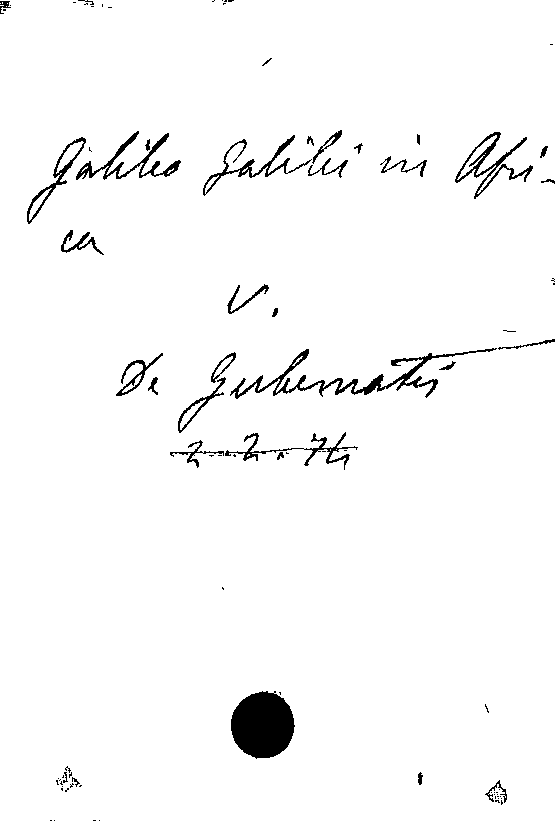 Galileo Galilei in Afri-
ca
V.
De Gubernatis
2.2.74